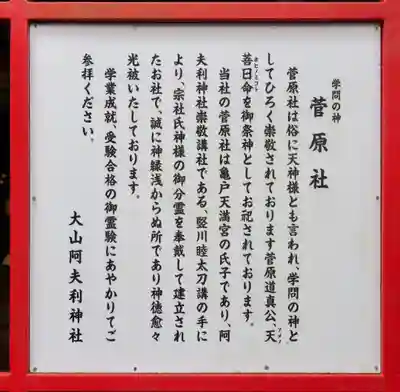 学問の神
菅原社
菅原社は俗に天神様とも言われ、学問の神と
してひろく崇敬されております菅原道真公、天
善日命を御祭神としてお祀されております。
当社の菅原社は亀戸天満宮の氏子であり、阿
夫利神社崇敬講社である、竪川睦太刀講の手に
より、宗社氏神様の御分霊を奉戴して建立され
たお社で、誠に神縁浅からぬ所であり神徳愈々
光被いたしております。
学業成就、受験合格の御霊験にあやかりてご
参拝ください。
大山阿夫利神社